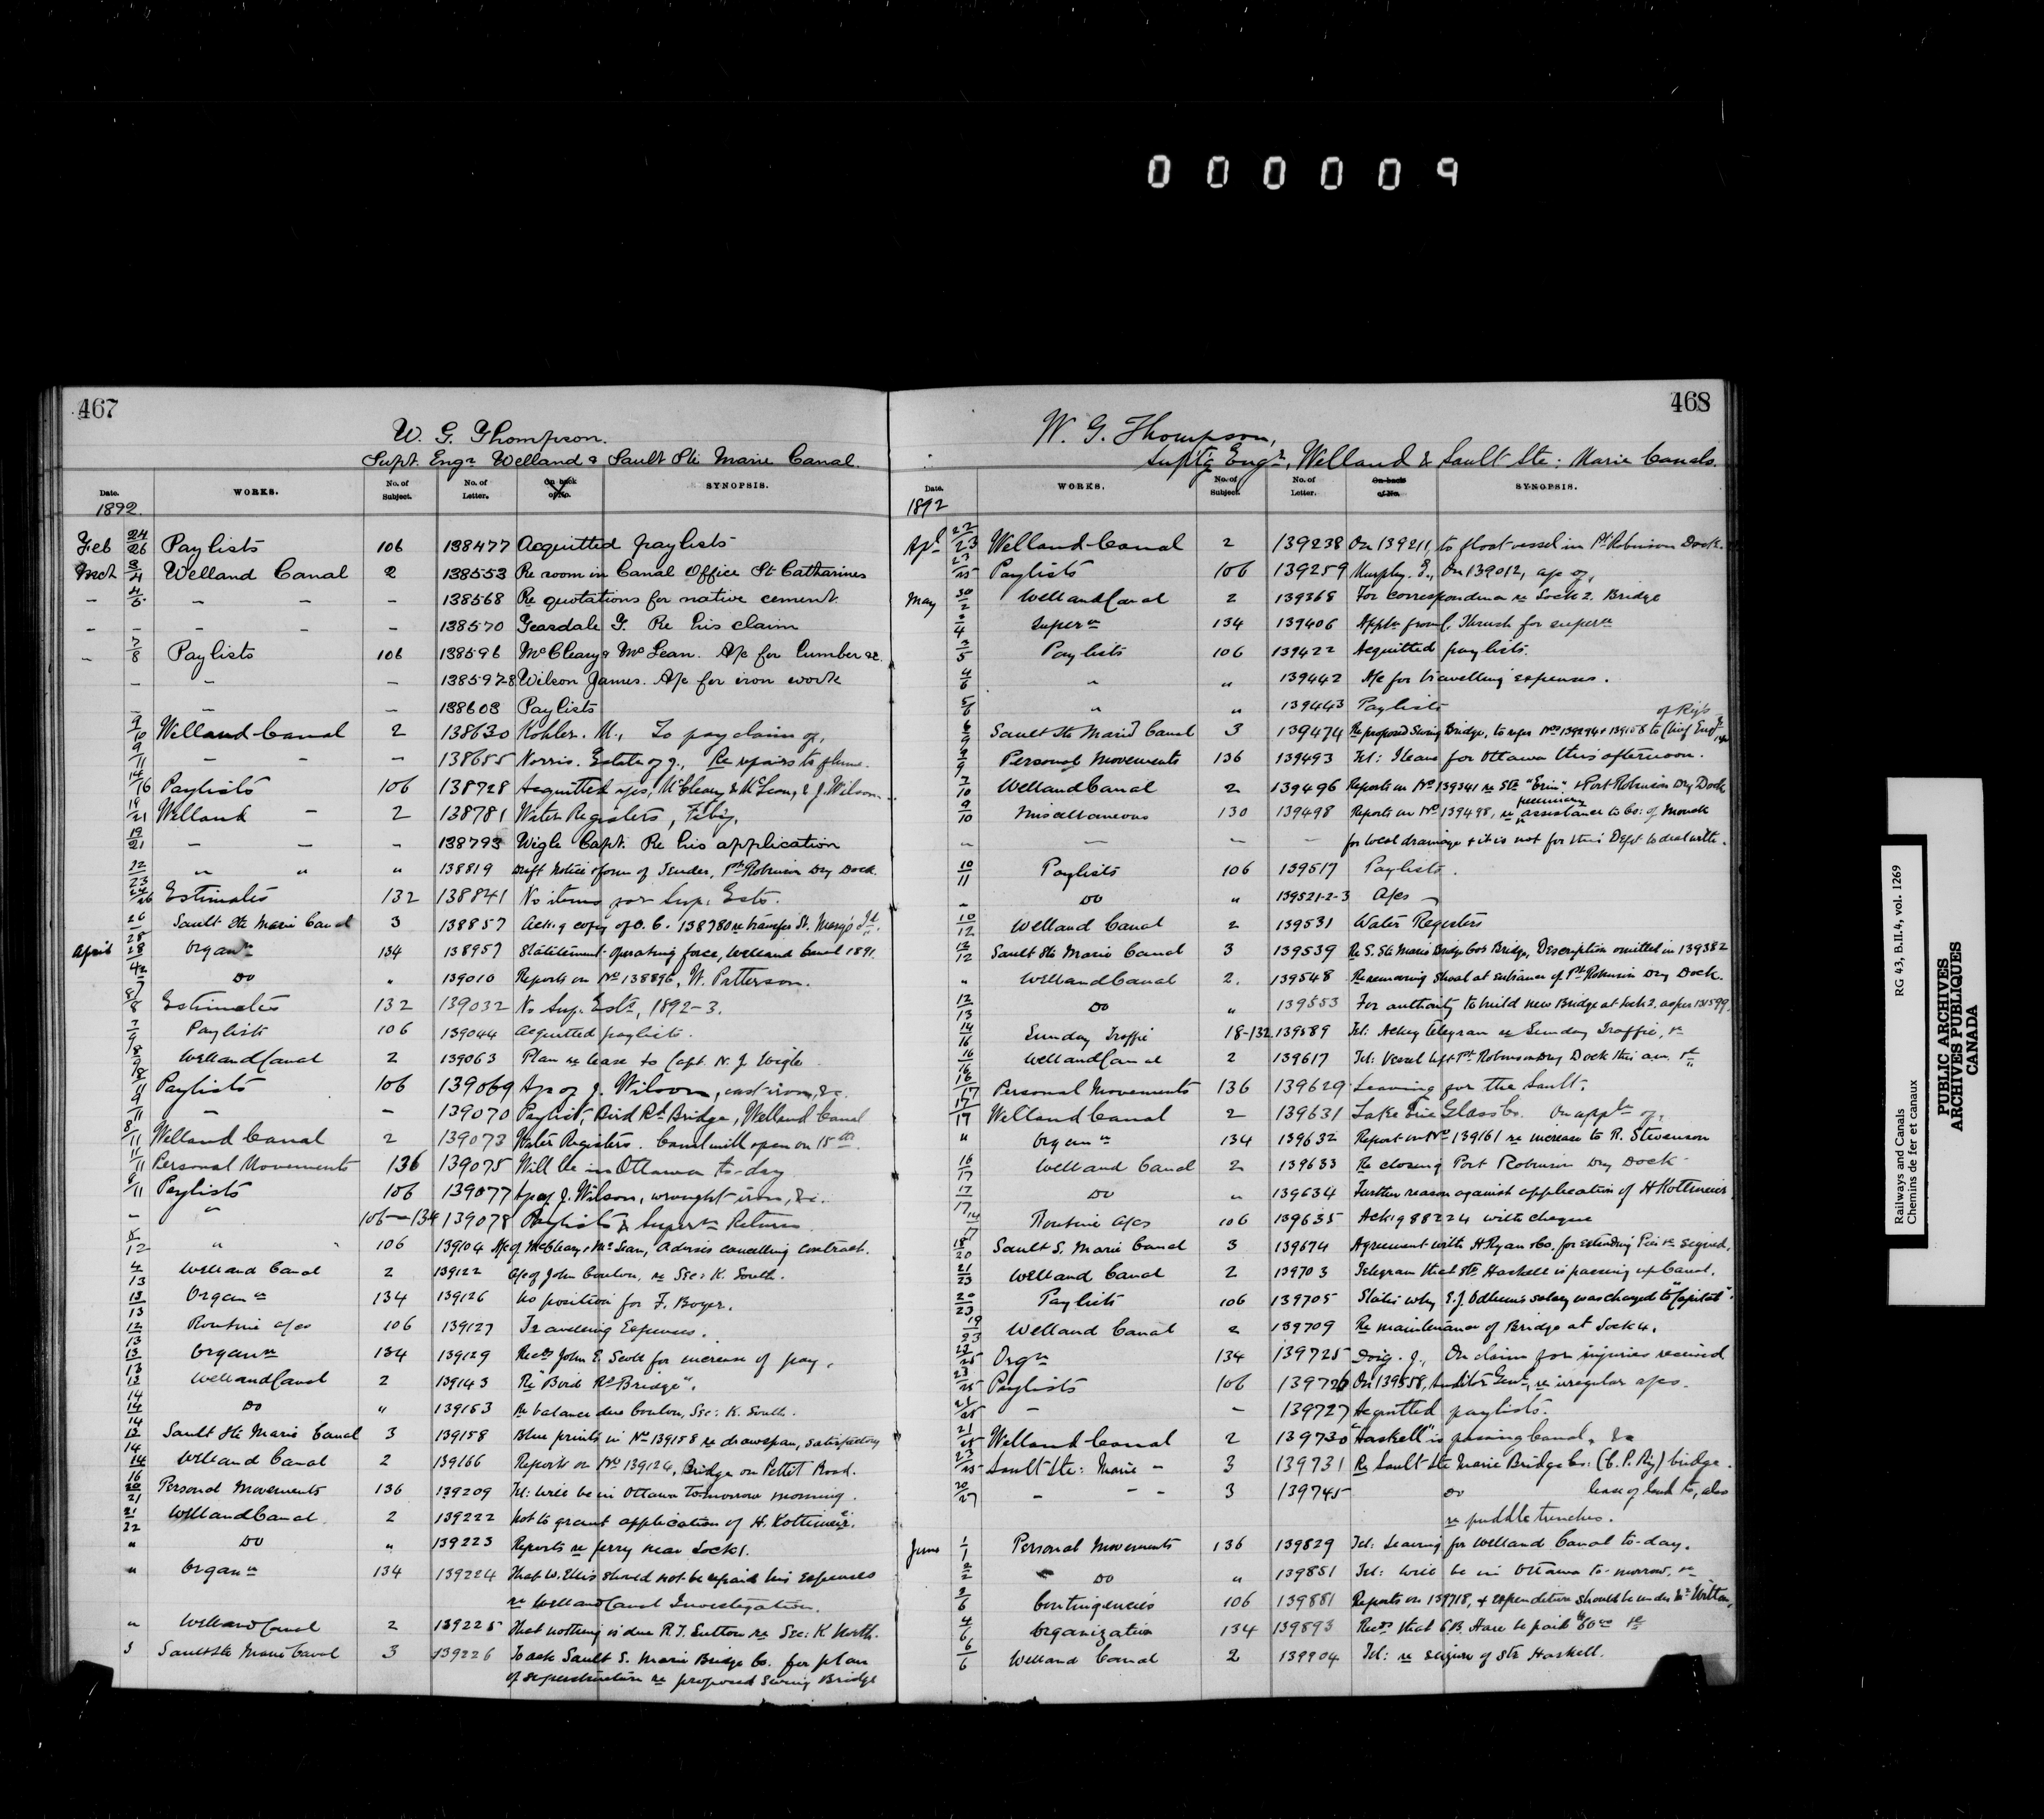 000009
467
W. G. Thompson.
Supt. Engr Welland & Sault Ste Marie Canal.
Date. WORKS. No. of Subject. No. of Letter. On back of No. SYNOPSIS.
1892.
Feb 24/26 Paylists 106 138477 Acquitted paylists
Mch 3/4 Welland Canal 2 138553 Re room in Canal Office St. Catharines
– 4/5 – – – 138568 Re quotations for native cement.
– – – – – 138570 Geardale G. Re his claim
– 7/8 Paylists 106 138596 McCleary & McLean. A/c for lumber &c.
– – – 138597-8 Wilson James. A/c for iron work
– – – 138603 Paylists
9/10 Welland Canal 2 138630 Kohler. M., To pay claim of,
9/11 – – – 138655 Norris. Estate of J., Re repairs to flume.
14/16 Paylists 106 138728 Acquitted a/cs, McCleary & McLean, & J. Wilson
19/21 Welland – 2 138781 Water Registers, Feby.
19/21 – – – 138793 Wigle Capt. Re his application
22/23 " " " 138819 Draft Notice & form of Tender, Pt Robinson Dry Dock.
24/26 Estimates 132 138841 No items for Sup. Ests.
26/28 Sault Ste Marie Canal 3 138857 Ackg copy of O.C. 138780 re transfer St. Mary's Id.
April Organn 134 138957 Statement operating force, Welland Canal 1891.
Do " 139010 Reports on No 138896, W. Patterson.
Estimates 132 139032 No Sup. Ests, 1892-3.
7/9 Paylists 106 139044 Acquitted paylists.
8/9 Welland Canal 2 139063 Plan re lease to Capt. N. J. Wigle
Paylists 106 139069 A/c of J. Wilson, cast iron, &c.
9/11 – – 139070 Paylist, Bird Rd Bridge, Welland Canal
8/11 Welland Canal 2 139073 Water Registers. Canal will open on 15th.
11/11 Personal Movements 136 139075 Will be in Ottawa to-day
8/11 Paylists 106 139077 A/c of J. Wilson, wrought iron, &c.
– " 106–134 139078 Paylists & Supern Returns
" 106 139104 A/c of McCleary & McLean, advises cancelling contract.
4/13 Welland Canal 2 139122 A/c of John Conlon, re Sec: K. South.
13/13 Organn 134 139126 No position for F. Boyer.
12/13 Routine a/cs 106 139127 Travelling Expenses.
13/13 Organn 134 139129 Recds John E. Scott for increase of pay.
Welland Canal 2 139143 Re "Bird Rd Bridge".
14/14 Do " 139153 Re balance due Conlon, Sec: K. South.
Sault Ste Marie Canal 3 139158 Blue prints in No 139158 re drawspan, satisfactory
14/14 Welland Canal 2 139166 Reports on No 139124, Bridge on Pettit Road.
20/21 Personal Movements 136 139209 Tel: will be in Ottawa tomorrow morning.
21/22 Welland Canal. 2 139222 Not to grant application of H. Kottmeier.
" Do " 139223 Reports re ferry near Lock 1.
" Organn 134 139224 That W. Ellis should not be repaid his expenses
re Welland Canal Investigation.
" Welland Canal 2 139225 That nothing is due R. J. Sutton re Sec: K North.
Sault Ste Marie Canal 3 139226 To ask Sault S. Marie Bridge Co. for plan
of superstructure re proposed Swing Bridge
468
W. G. Thompson,
Suptg Engr, Welland & Sault Ste: Marie Canals.
Date. WORKS. No. of Subject. No. of Letter. On back of No. SYNOPSIS.
1892
Apl 22/23 Welland Canal 2 139238 On 139211, to float vessel in Pt Robinson Dock.
23/25 Paylists 106 139259 Murphy. E., On 139012, a/c of,
May 30/2 Welland Canal 2 139368 For correspondence re Lock 2. Bridge
3/4 Supern 134 139406 Appln from C. Thrush for supern
3/5 Paylists 106 139422 Acquitted paylists.
4/6 " " 139442 A/c for travelling expenses.
5/6 " " 139443 Paylists
6/9 Sault Ste Marie Canal 3 139474 Re proposed Swing Bridge, to refer Nos 139294 & 139158 to Chief Engr of Rys
9/9 Personal Movements 136 139493 Tel: I leave for Ottawa this afternoon.
7/10 Welland Canal 2 139496 Reports on No 139341 re Str "Erin" & Port Robinson Dry Dock
9/10 Miscellaneous 130 139498 Reports on No 139498, re pecuniary assistance to Co: of Monck
– – – – for local drainage & it is not for this Dept to deal with.
10/11 Paylists 106 139517 Paylists.
– Do " 139521-2-3 A/cs –
10/12 Welland Canal 2 139531 Water Registers
12/12 Sault Ste Marie Canal 3 139539 Re S. Ste Marie Bridge Co's Bridge, Description omitted in 139382
" Welland Canal 2. 139548 Re removing shoal at entrance of Pt Robinson Dry Dock.
12/13 Do " 139553 For authority to build new Bridge at Lock 2. as per 131599.
14/16 Sunday Traffic 18-132 139589 Tel: Ackg telegram re Sunday Traffic, &c
16/16 Welland Canal 2 139617 Tel: Vessel left Pt Robinson Dry Dock this a.m. &c
16/17 Personal Movements 136 139629 Leaving for the Sault.
17/17 Welland Canal 2 139631 Lake Erie Glass Co. On appln of.
" Organn 134 139632 Report on No 139161 re increase to R. Stevenson
16/17 Welland Canal 2 139633 Re closing Port Robinson Dry Dock
17/17 Do " 139634 Further reason against application of H Kottmeier
14/17 Routine A/cs 106 139635 Ackg 88224 with cheque
18/20 Sault S. Marie Canal 3 139674 Agreement with H Ryan & Co. for extending Pier &c signed.
21/23 Welland Canal 2 139703 Telegram that Str Haskell is passing up Canal.
20/23 Paylists 106 139705 States why E. J. Odlum's salary was charged to "Capital".
19/23 Welland Canal 2 139709 Re maintenance of Bridge at Lock 4.
23/25 Orgn 134 139725 Doig. J., On claim for injuries received
23/25 Paylists 106 139726 On 139558, Auditor Genl, re irregular a/cs.
– – 139727 Acquitted paylists.
21/25 Welland Canal 2 139730 "Haskell" is passing Canal, &c
23/25 Sault Ste: Marie – 3 139731 Re Sault Ste Marie Bridge Co: (C. P. Ry) bridge.
20/27 – – – 3 139745 Do lease of land to, also
re puddle trenches.
June 1/1 Personal Movements 136 139829 Tel: Leaving for Welland Canal to-day.
2/2 Do " 139851 Tel: Will be in Ottawa to-morrow, &c
Contingencies 106 139881 Reports on 139718, & expenditure should be under Mr Witton,
4/6 Organization 134 139893 Recds that C.B. Hare be paid $60.00 &c
6/6 Welland Canal 2 139904 Tel: re seizure of Str Haskell.
Railways and Canals RG 43, B.II.4, vol. 1269
Chemins de fer et canaux
PUBLIC ARCHIVES
ARCHIVES PUBLIQUES
CANADA